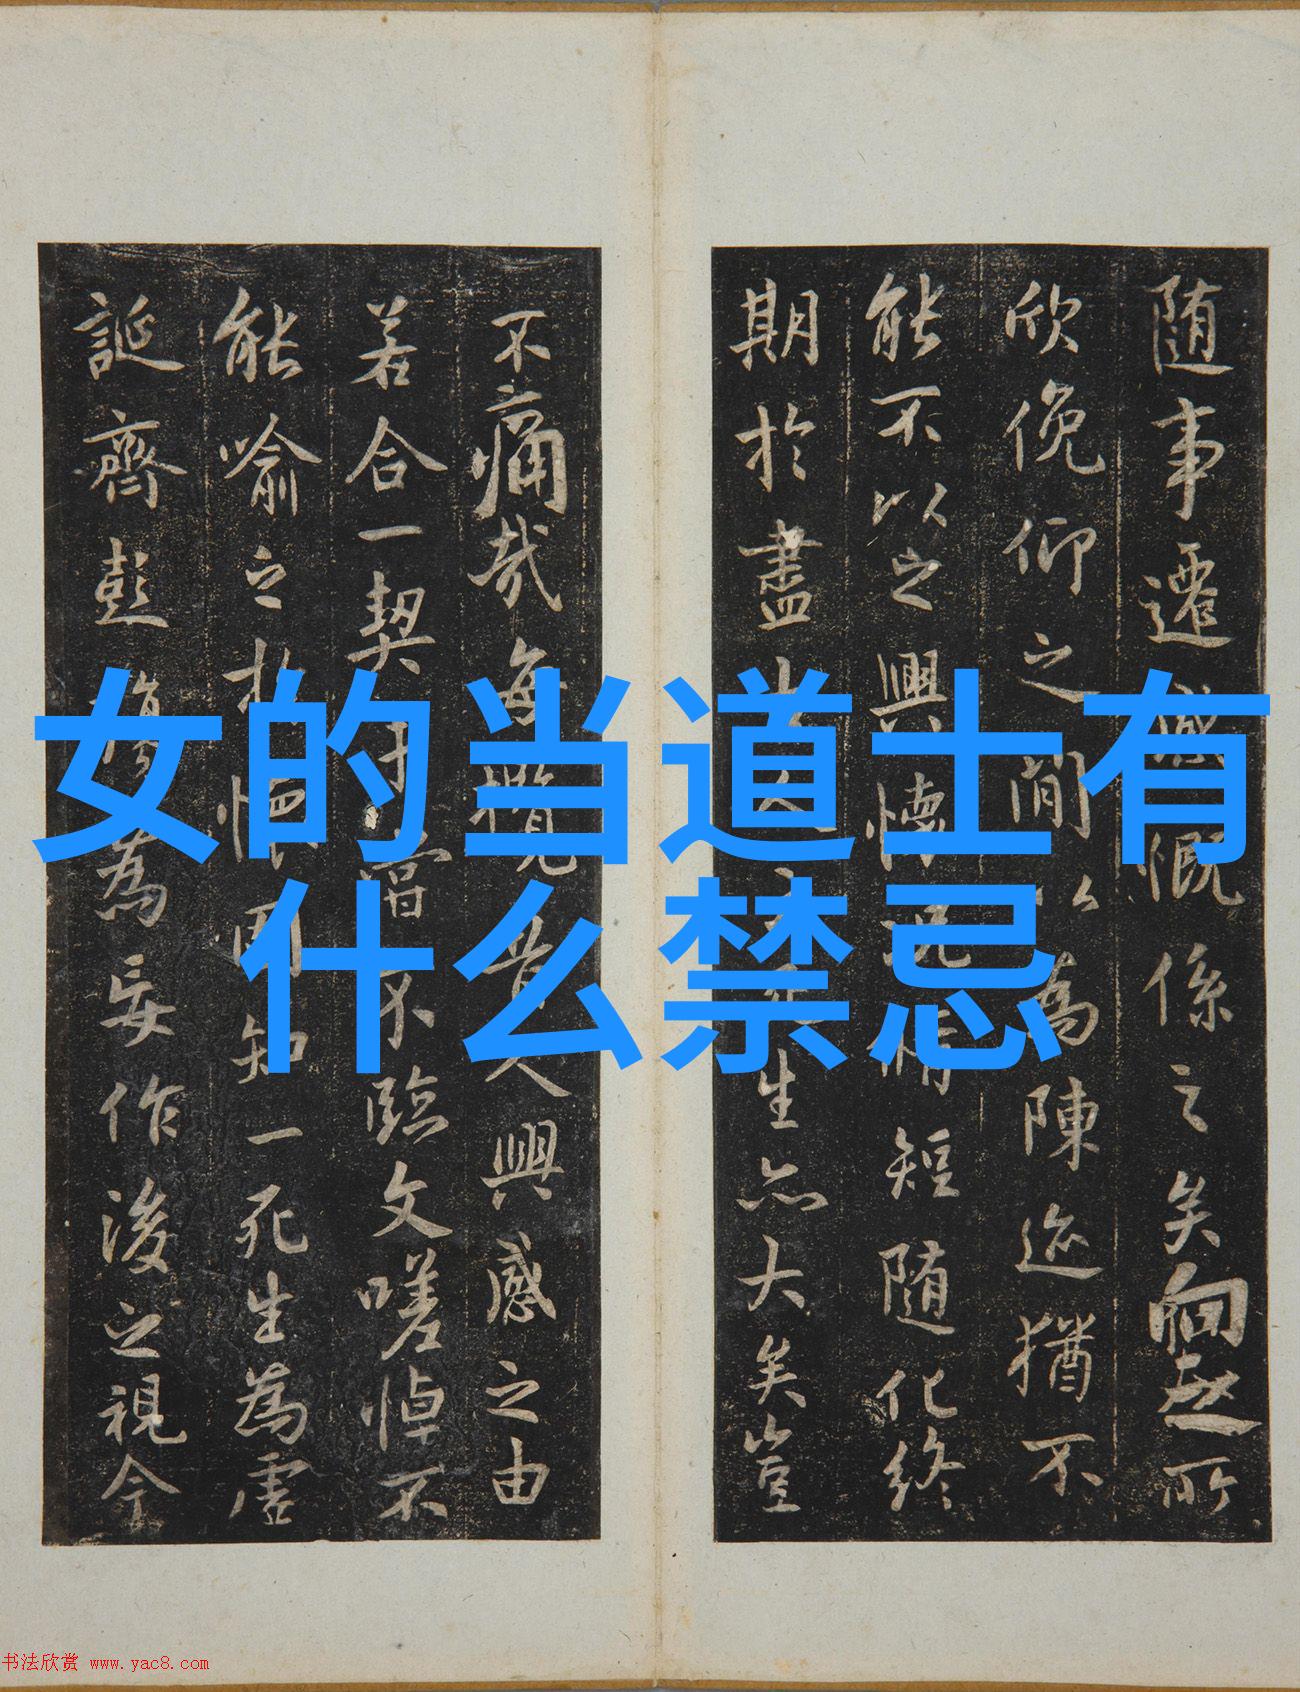 女的当道士有
什么禁忌
随事遷感慨係之矣向之所
欣俛仰之閒以為陳迹猶不
能不以之興懷況脩短随化終
期於盡古人云死生亦大矣豈
不痛哉每攬昔人興感之由
若合一契未嘗不臨文嗟悼不
能喻之於懷固知一死生為虛
誕齊彭殤為妄作後之視今
书法欣赏 www.yac8.com